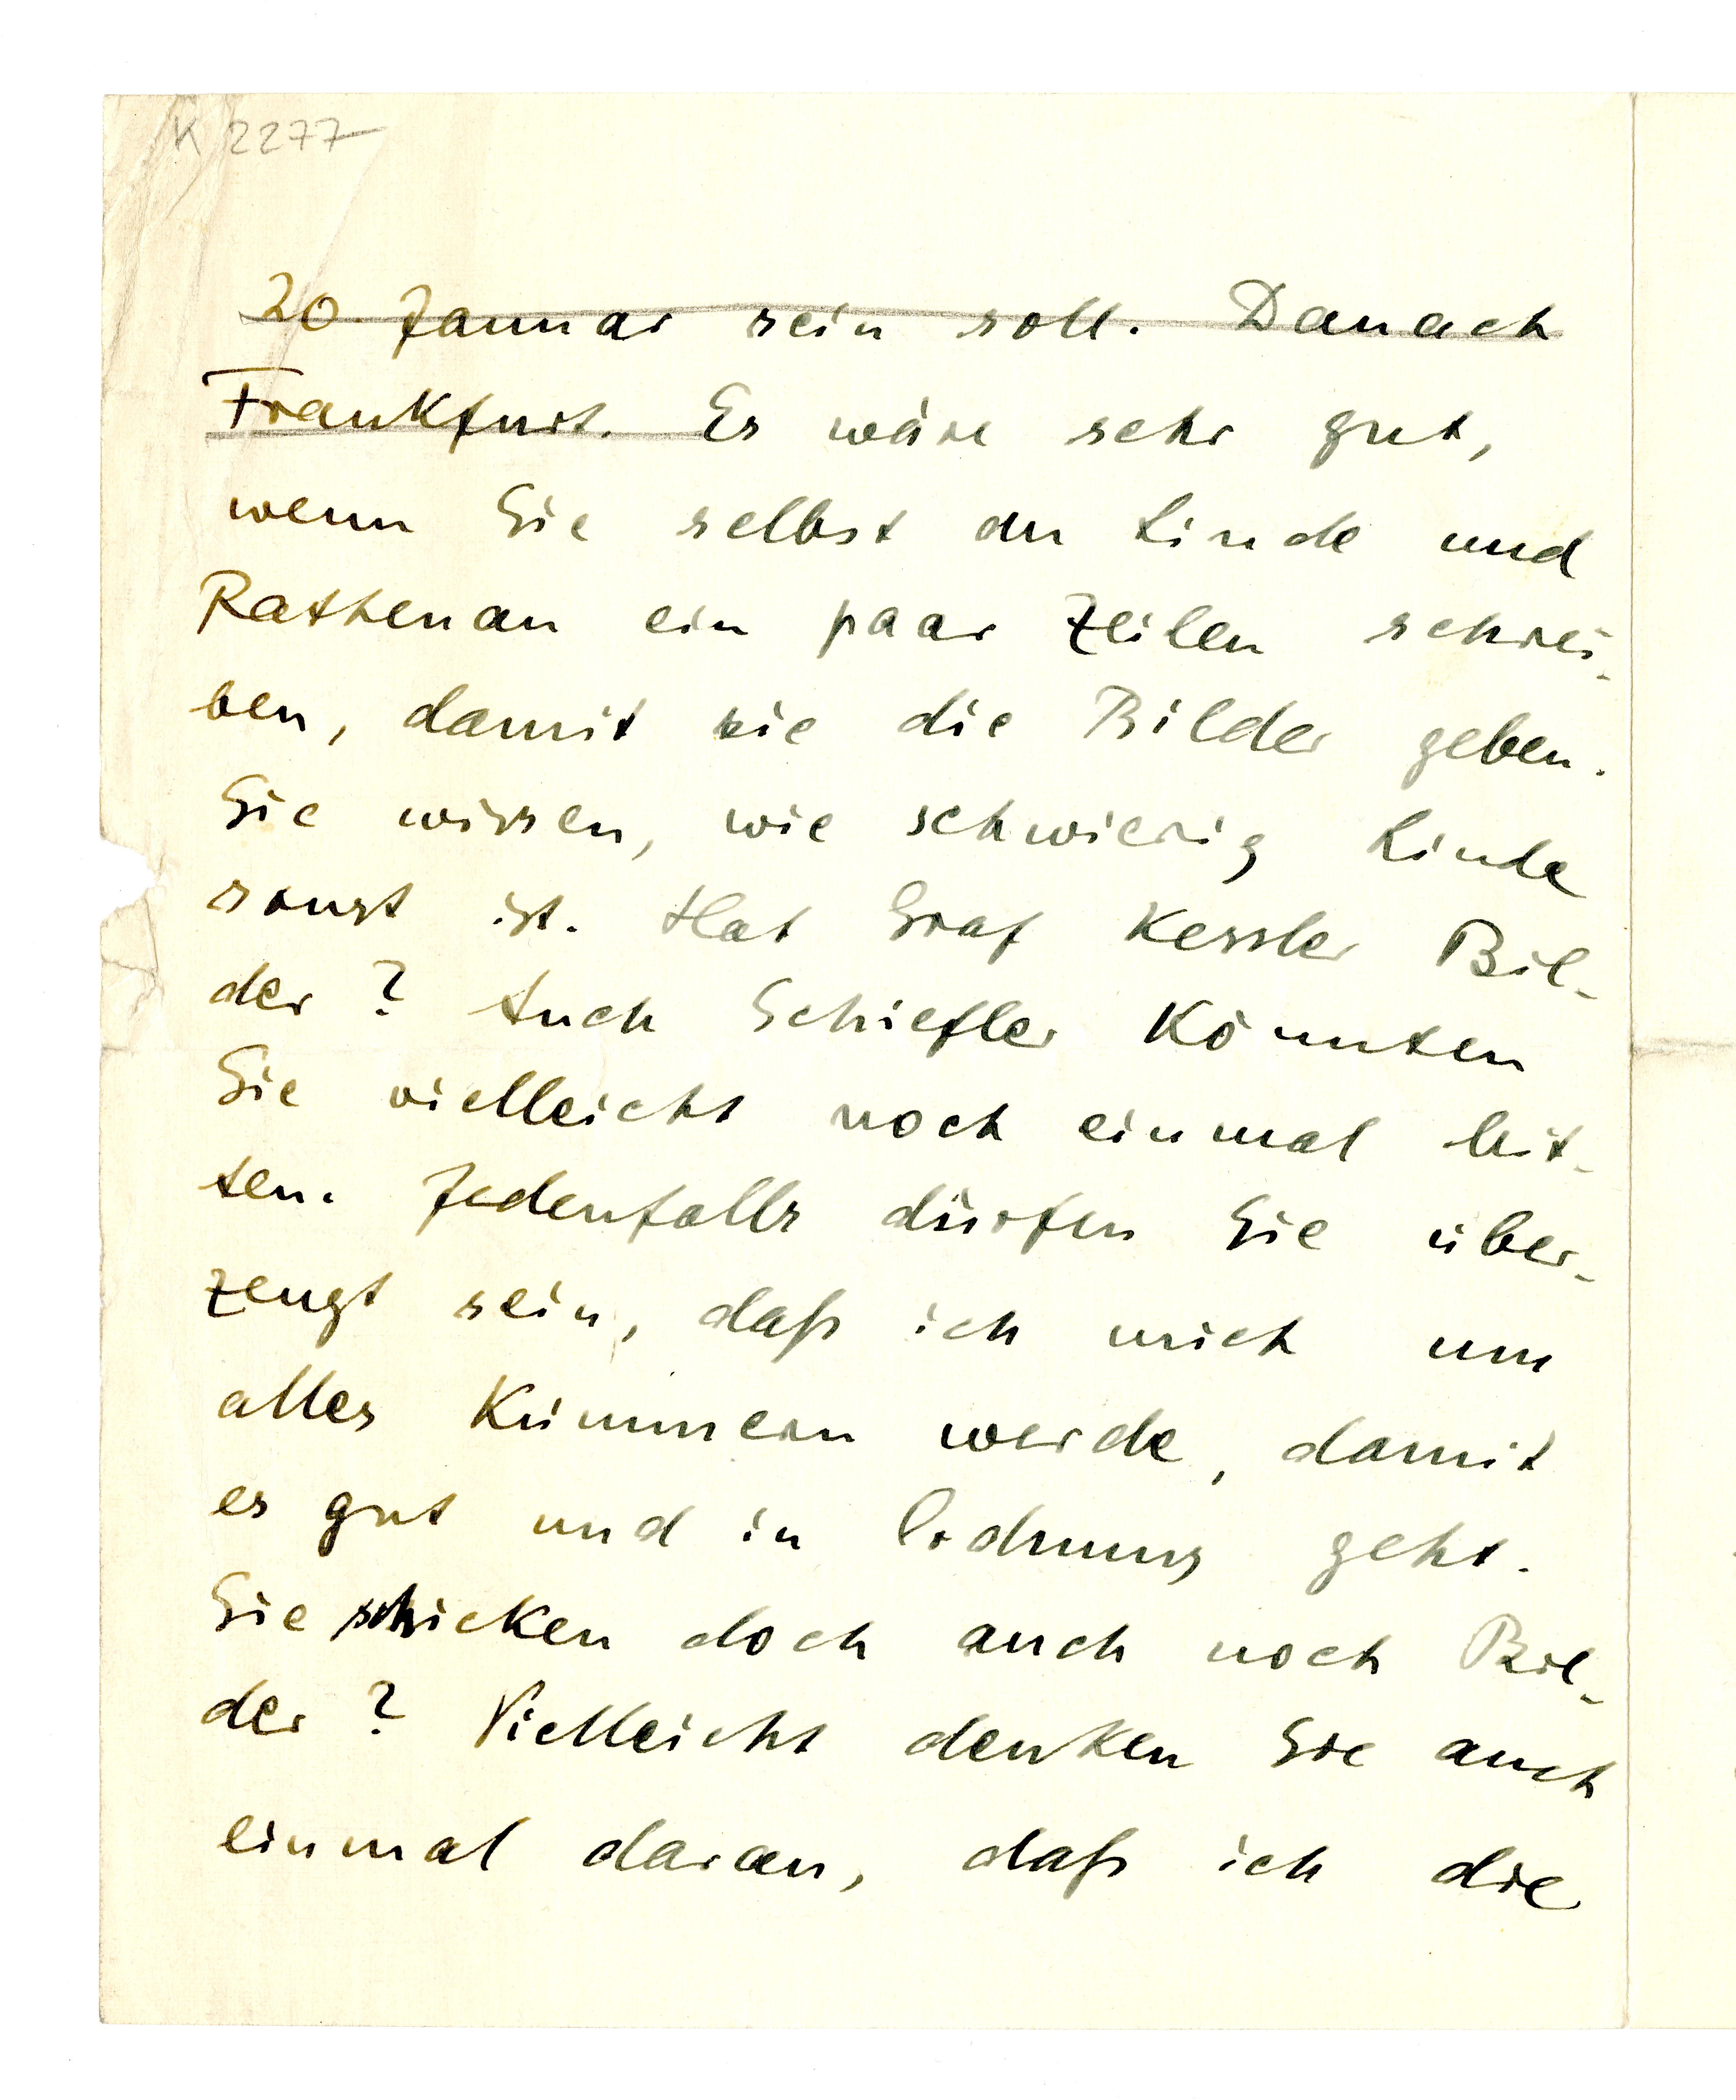 K 2277
20. Januar sein soll. Danach
Frankfurt. Es wäre sehr gut,
wenn Sie selbst an Linde und
Rathenau ein paar Zeilen schrei-
ben, damit sie die Bilder geben.
Sie wissen, wie schwierig Linde
sonst ist. Hat Graf Kessler Bil-
der? Auch Schiefler könnten
Sie vielleicht noch einmal bit-
ten. Jedenfalls dürfen Sie über-
zeugt sein, daß ich mich um
alles kümmern werde, damit
es gut und in Ordnung geht.
Sie schicken doch auch noch Bil-
der? Vielleicht denken Sie auch
einmal daran, daß ich die